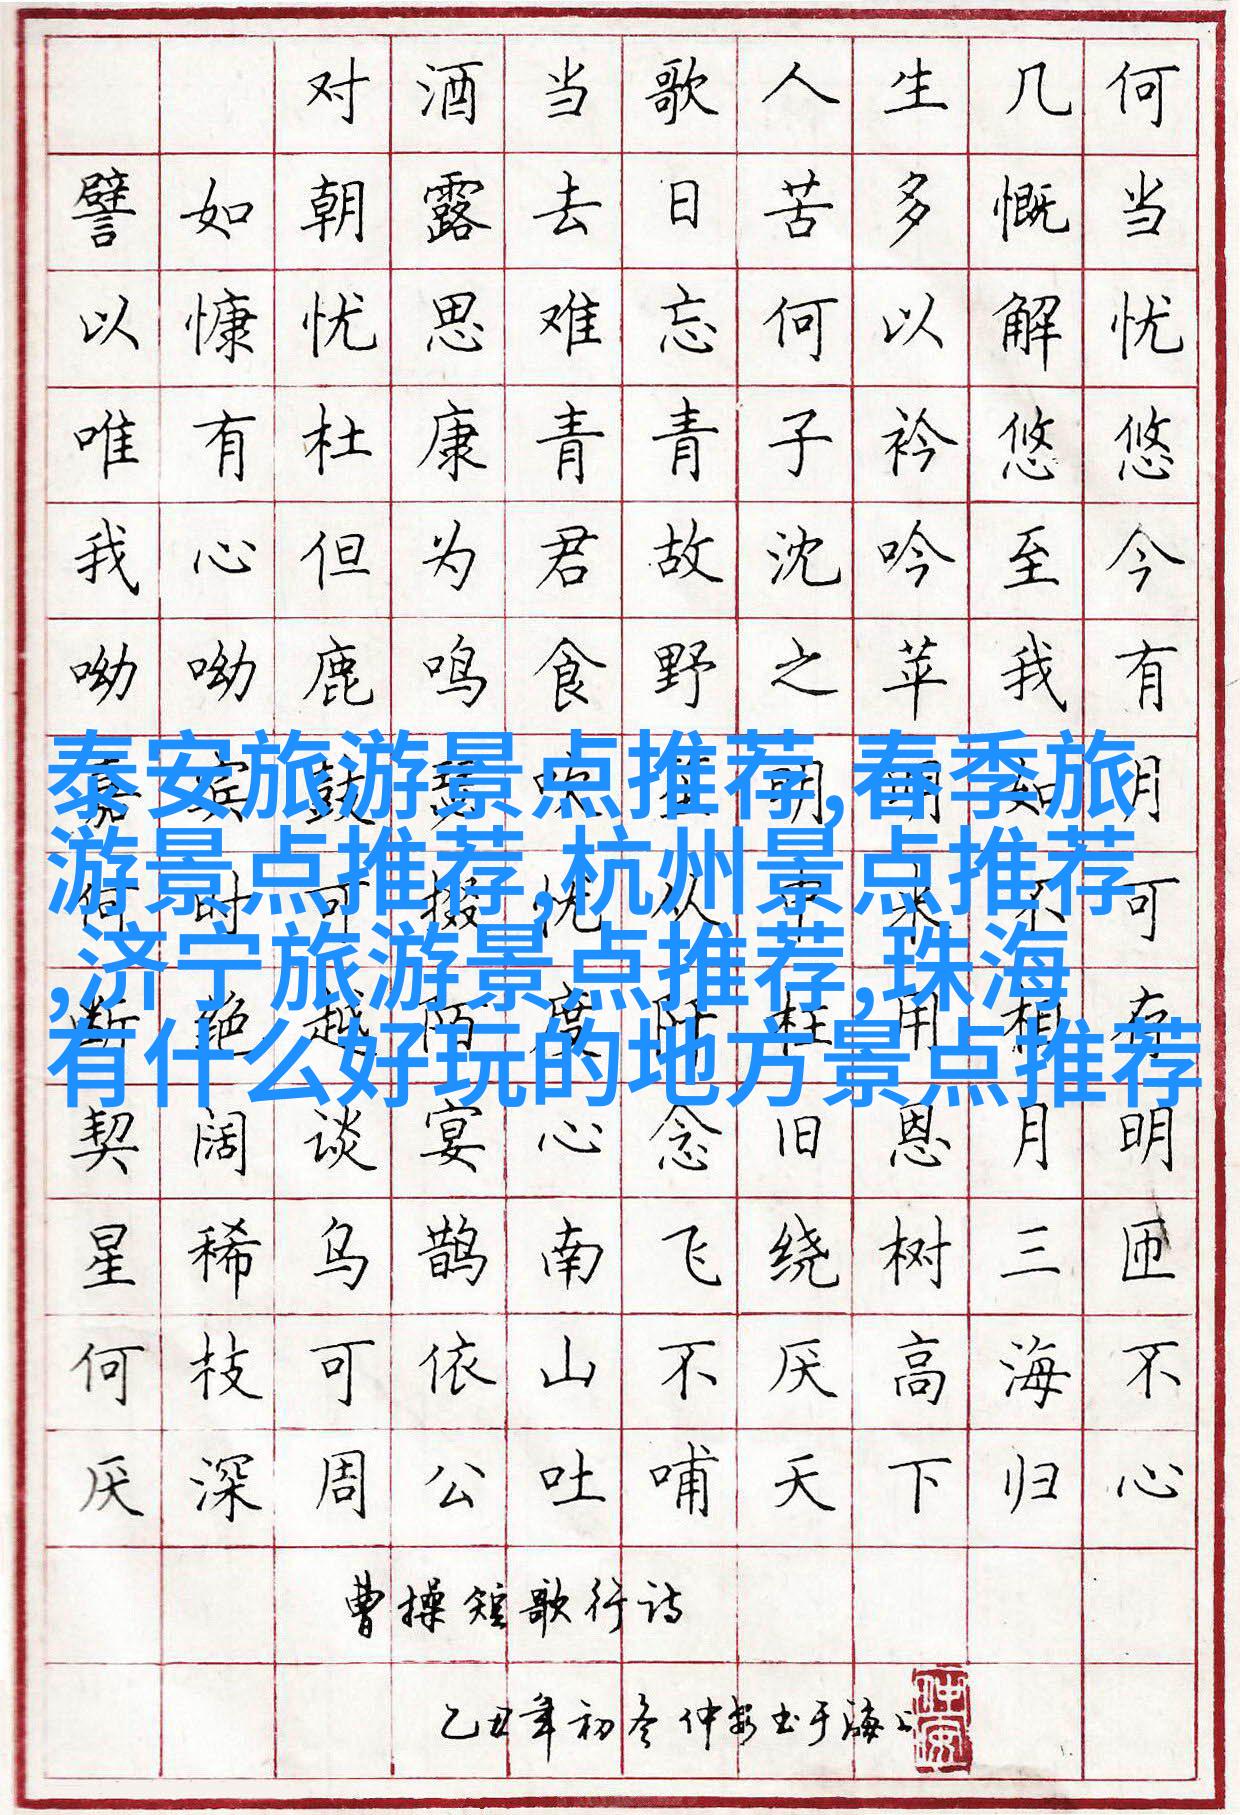 对酒当歌人生几何
譬如朝露去日苦多慨当
以慷忧思难忘何以解忧
唯有杜康青青子衿悠悠
我心但为君故沈吟至今
呦呦鹿鸣食野之苹我有
嘉宾鼓瑟吹笙明明如月
泰安旅游景点推荐,春季旅
游景点推荐,杭州景点推荐
,济宁旅游景点推荐,珠海
有什么好玩的地方景点推荐
何时可掇忧从中来不可
断绝越陌度阡枉用相存
契阔谈宴心念旧恩月明
星稀乌鹊南飞绕树三匝
何枝可依山不厌高海不
厌深周公吐哺天下归心
曹操短歌行诗
乙丑年初冬仲安书于海上
仲安